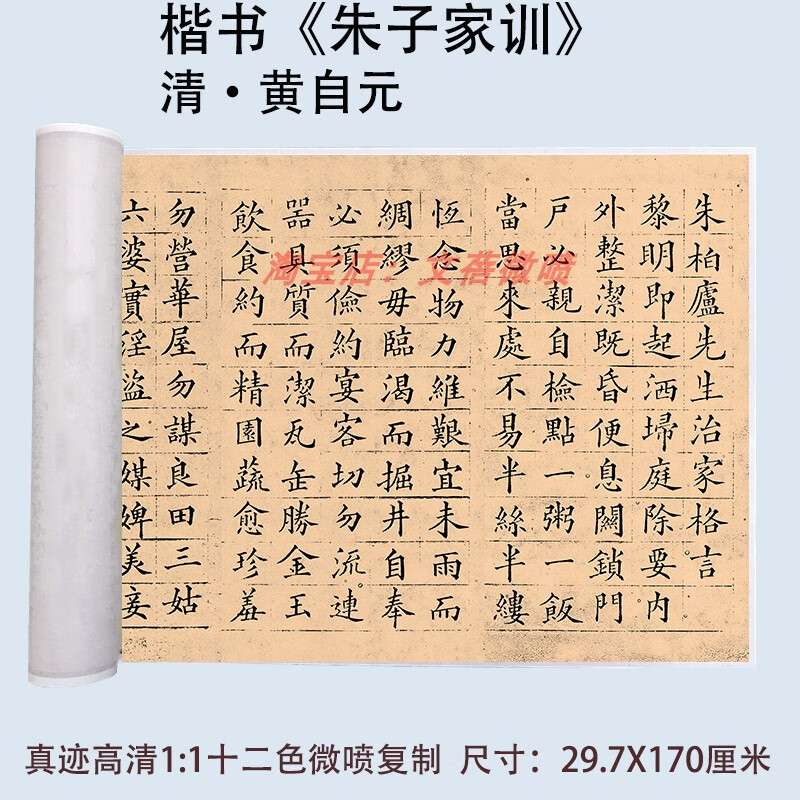 楷书《朱子家训》
清·黄自元
朱柏廬先生治家格言
黎明即起洒埽庭除要内
外整潔既昏便息關鎖門
戶必親自檢點一粥一飯
當思來處不易半絲半縷
恆念物力維艱宜未雨而
綢繆毋臨渴而掘井自奉
必須儉約宴客切勿流連
器具質而潔瓦缶勝金玉
飲食約而精園蔬愈珍羞
勿營華屋勿謀良田三姑
六婆實淫盜之媒婢美妾
淘宝店：文蓓微喷
真迹高清1:1十二色微喷复制 尺寸：29.7X170厘米